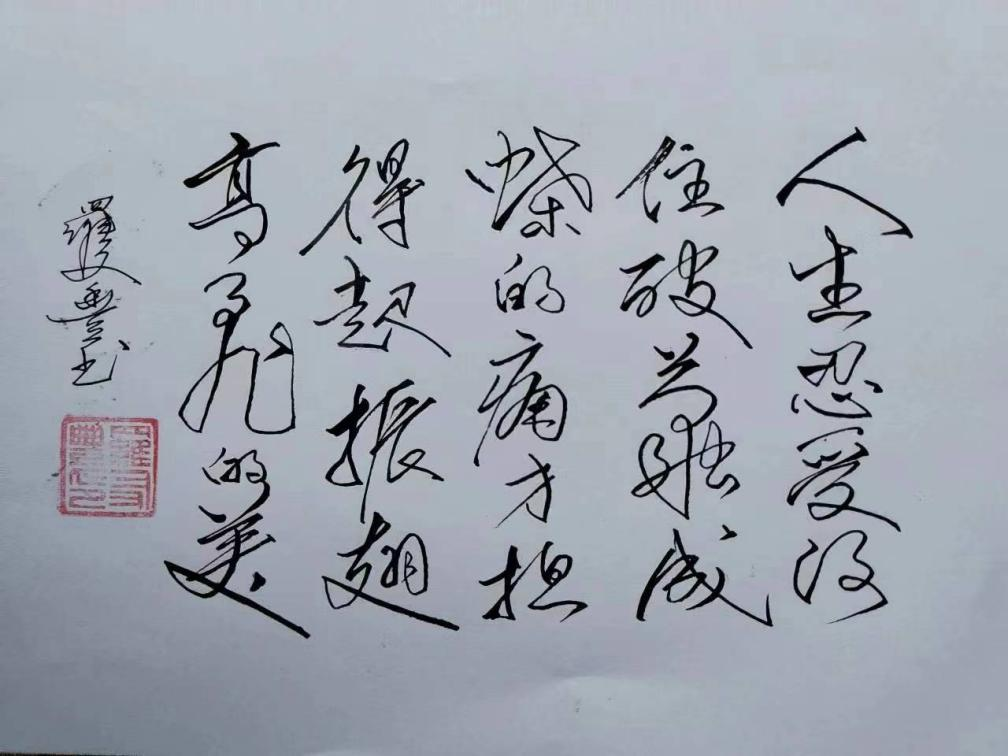 人生忍受得
住破茧成
蝶的痛才担
得起振翅
高飞的美
羅豐书